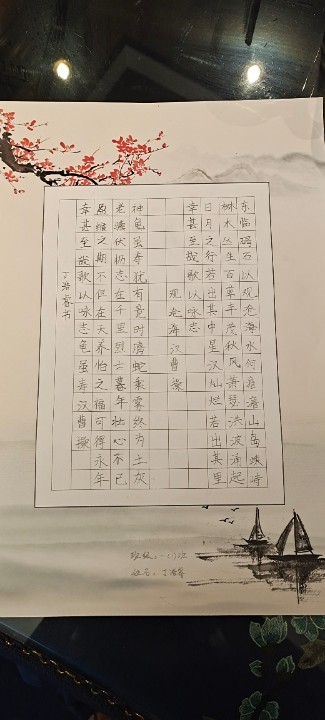 东临碣石以观沧海水何澹澹山岛竦峙
树木丛生百草丰茂秋风萧瑟洪波涌起
日月之行若出其中星汉灿烂若出其里
幸甚至哉歌以咏志
观沧海 汉 曹操
神龟虽寿犹有竟时腾蛇乘雾终为土灰
老骥伏枥志在千里烈士暮年壮心不已
盈缩之期不但在天养怡之福可得永年
幸甚至哉歌以咏志龟虽寿汉曹操
丁浩书
班级：班
姓名：丁浩